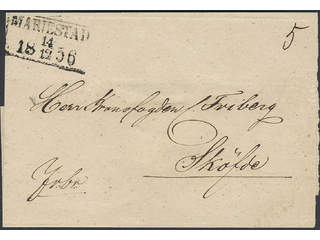 MARIESTAD
14
18 12 56
5
Herr Kronofogden Friberg
Sköfde
Frbr.